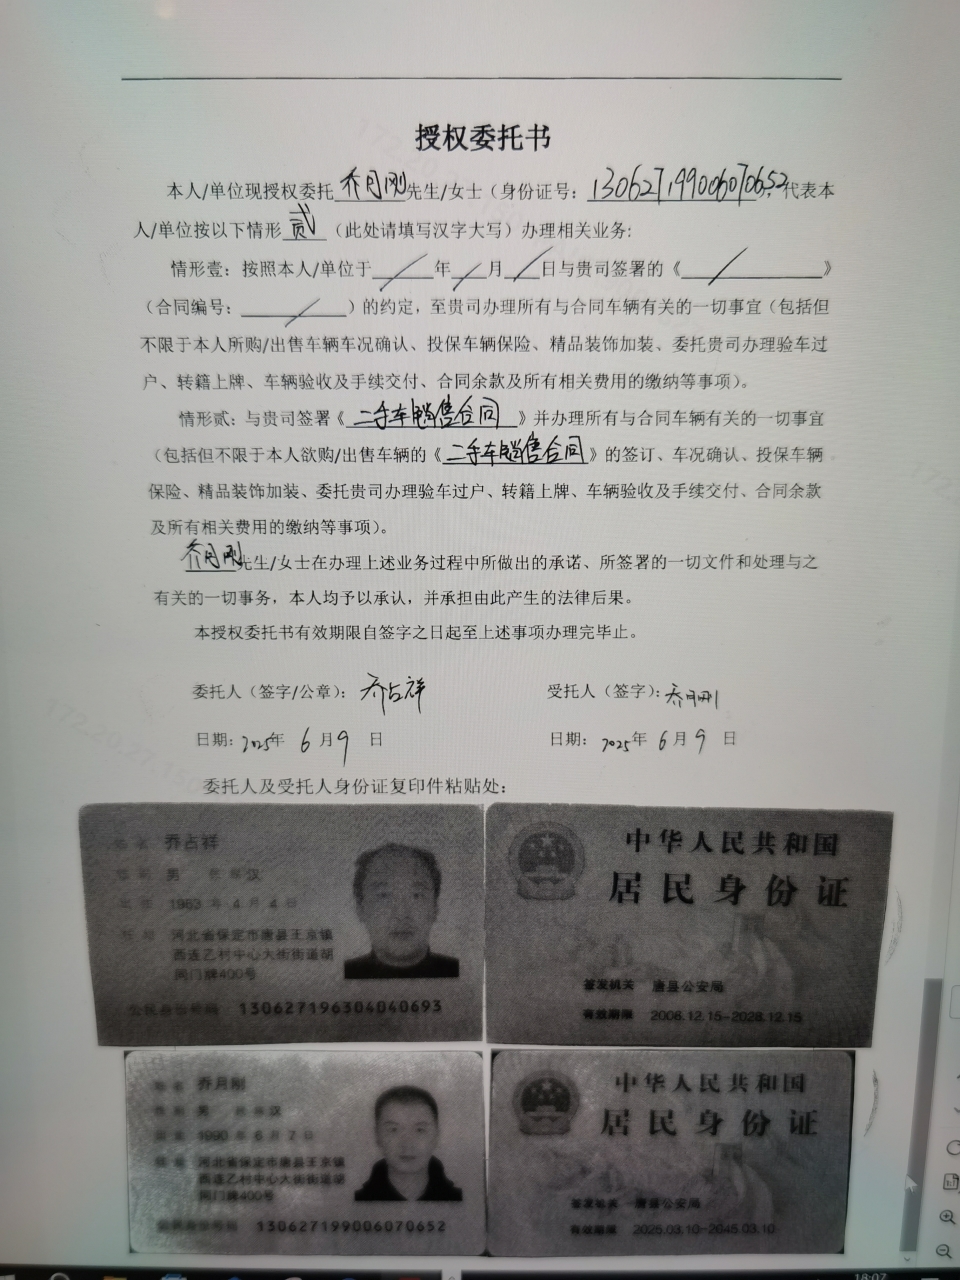 授权委托书
本人/单位现授权委托乔月刚先生/女士（身份证号：130627199006070652，代表本
人/单位按以下情形贰（此处请填写汉字大写）办理相关业务:
情形壹：按照本人/单位于／年／月／日与贵司签署的《／》
（合同编号：／）的约定，至贵司办理所有与合同车辆有关的一切事宜（包括但
不限于本人所购/出售车辆车况确认、投保车辆保险、精品装饰加装、委托贵司办理验车过
户、转籍上牌、车辆验收及手续交付、合同余款及所有相关费用的缴纳等事项）。
情形贰：与贵司签署《二手车销售合同》并办理所有与合同车辆有关的一切事宜
（包括但不限于本人欲购/出售车辆的《二手车销售合同》的签订、车况确认、投保车辆
保险、精品装饰加装、委托贵司办理验车过户、转籍上牌、车辆验收及手续交付、合同余款
及所有相关费用的缴纳等事项）。
乔月刚先生/女士在办理上述业务过程中所做出的承诺、所签署的一切文件和处理与之
有关的一切事务，本人均予以承认，并承担由此产生的法律后果。
本授权委托书有效期限自签字之日起至上述事项办理完毕止。
委托人（签字/公章）：乔占祥 受托人（签字）：乔月刚
日期：2025年 6月9日 日期：2025年 6月9日
委托人及受托人身份证复印件粘贴处：
姓名 乔占祥
性别 男 民族 汉
出生 1963 年 4 月 4 日
住址 河北省保定市唐县王京镇
西连乙村中心大街街道胡
同门牌400号
公民身份号码 130627196304040693
中华人民共和国
居民身份证
签发机关 唐县公安局
有效期限 2008.12.15-2028.12.15
姓名 乔月刚
性别 男 民族 汉
出生 1990 年 6 月 7 日
住址 河北省保定市唐县王京镇
西连乙村中心大街街道胡
同门牌400号
公民身份号码 130627199006070652
中华人民共和国
居民身份证
签发机关 唐县公安局
有效期限 2025.03.10-2045.03.10
18:07